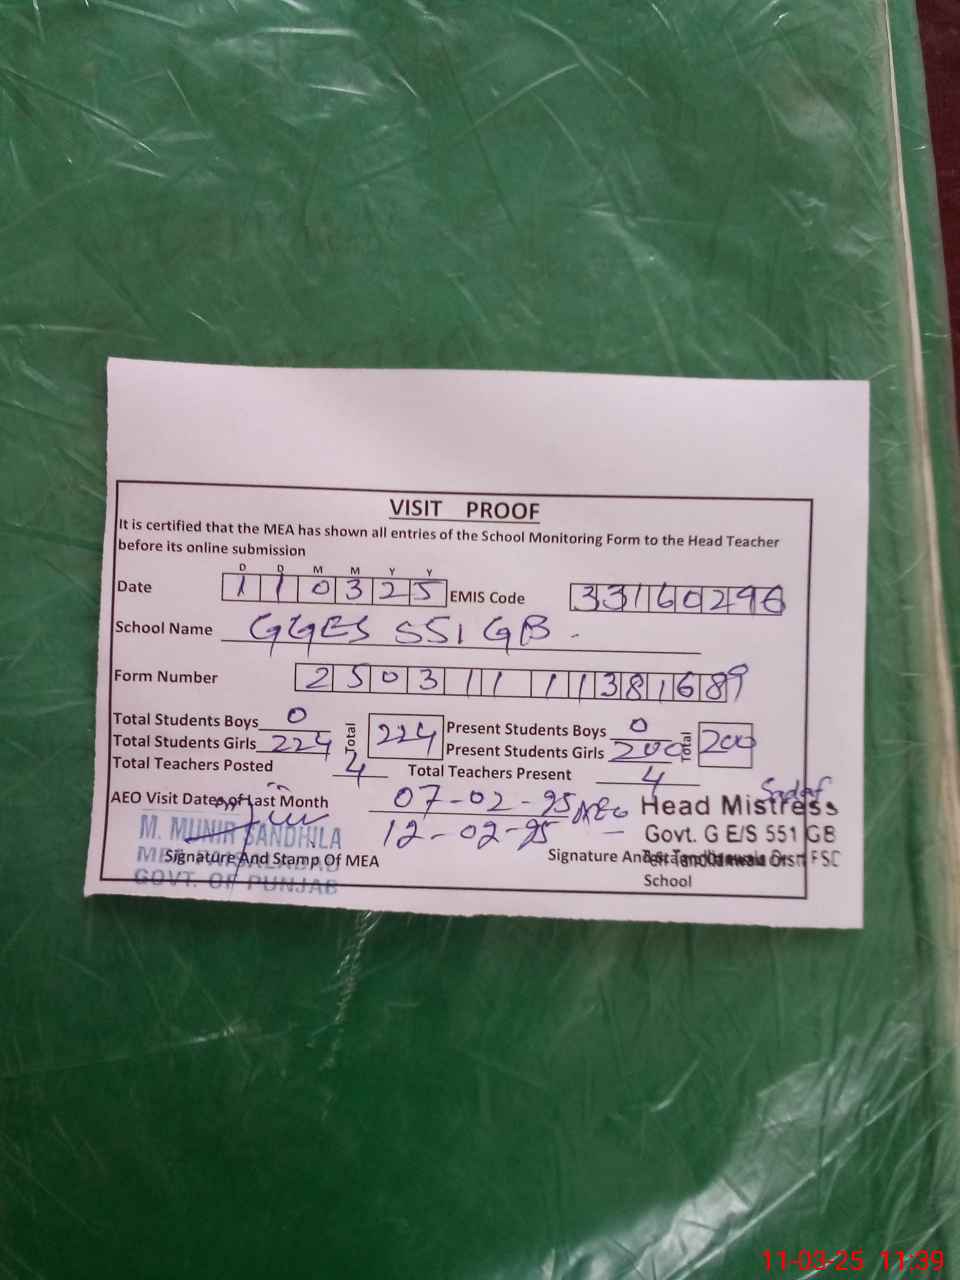 VISIT PROOF
It is certified that the MEA has shown all entries of the School Monitoring Form to the Head Teacher
before its online submission
D D M M Y Y
Date 110325 EMIS Code 33160296
School Name GGES 551 GB
Form Number 250311111381689
Total Students Boys 0 Total 224 Present Students Boys 0 Total 200
Total Students Girls 224 Present Students Girls 200
Total Teachers Posted 4 Total Teachers Present 4
AEO Visit Dates of Last Month 07-02-25 AEO
12-02-25
Sadaf
Head Mistress
Govt. G E/S 551 GB
M. MUNIR SANDHILA
MEA FAISALABAD
GOVT. OF PUNJAB
Signature And Stamp Of MEA Signature And
School
11-03-25 11:39